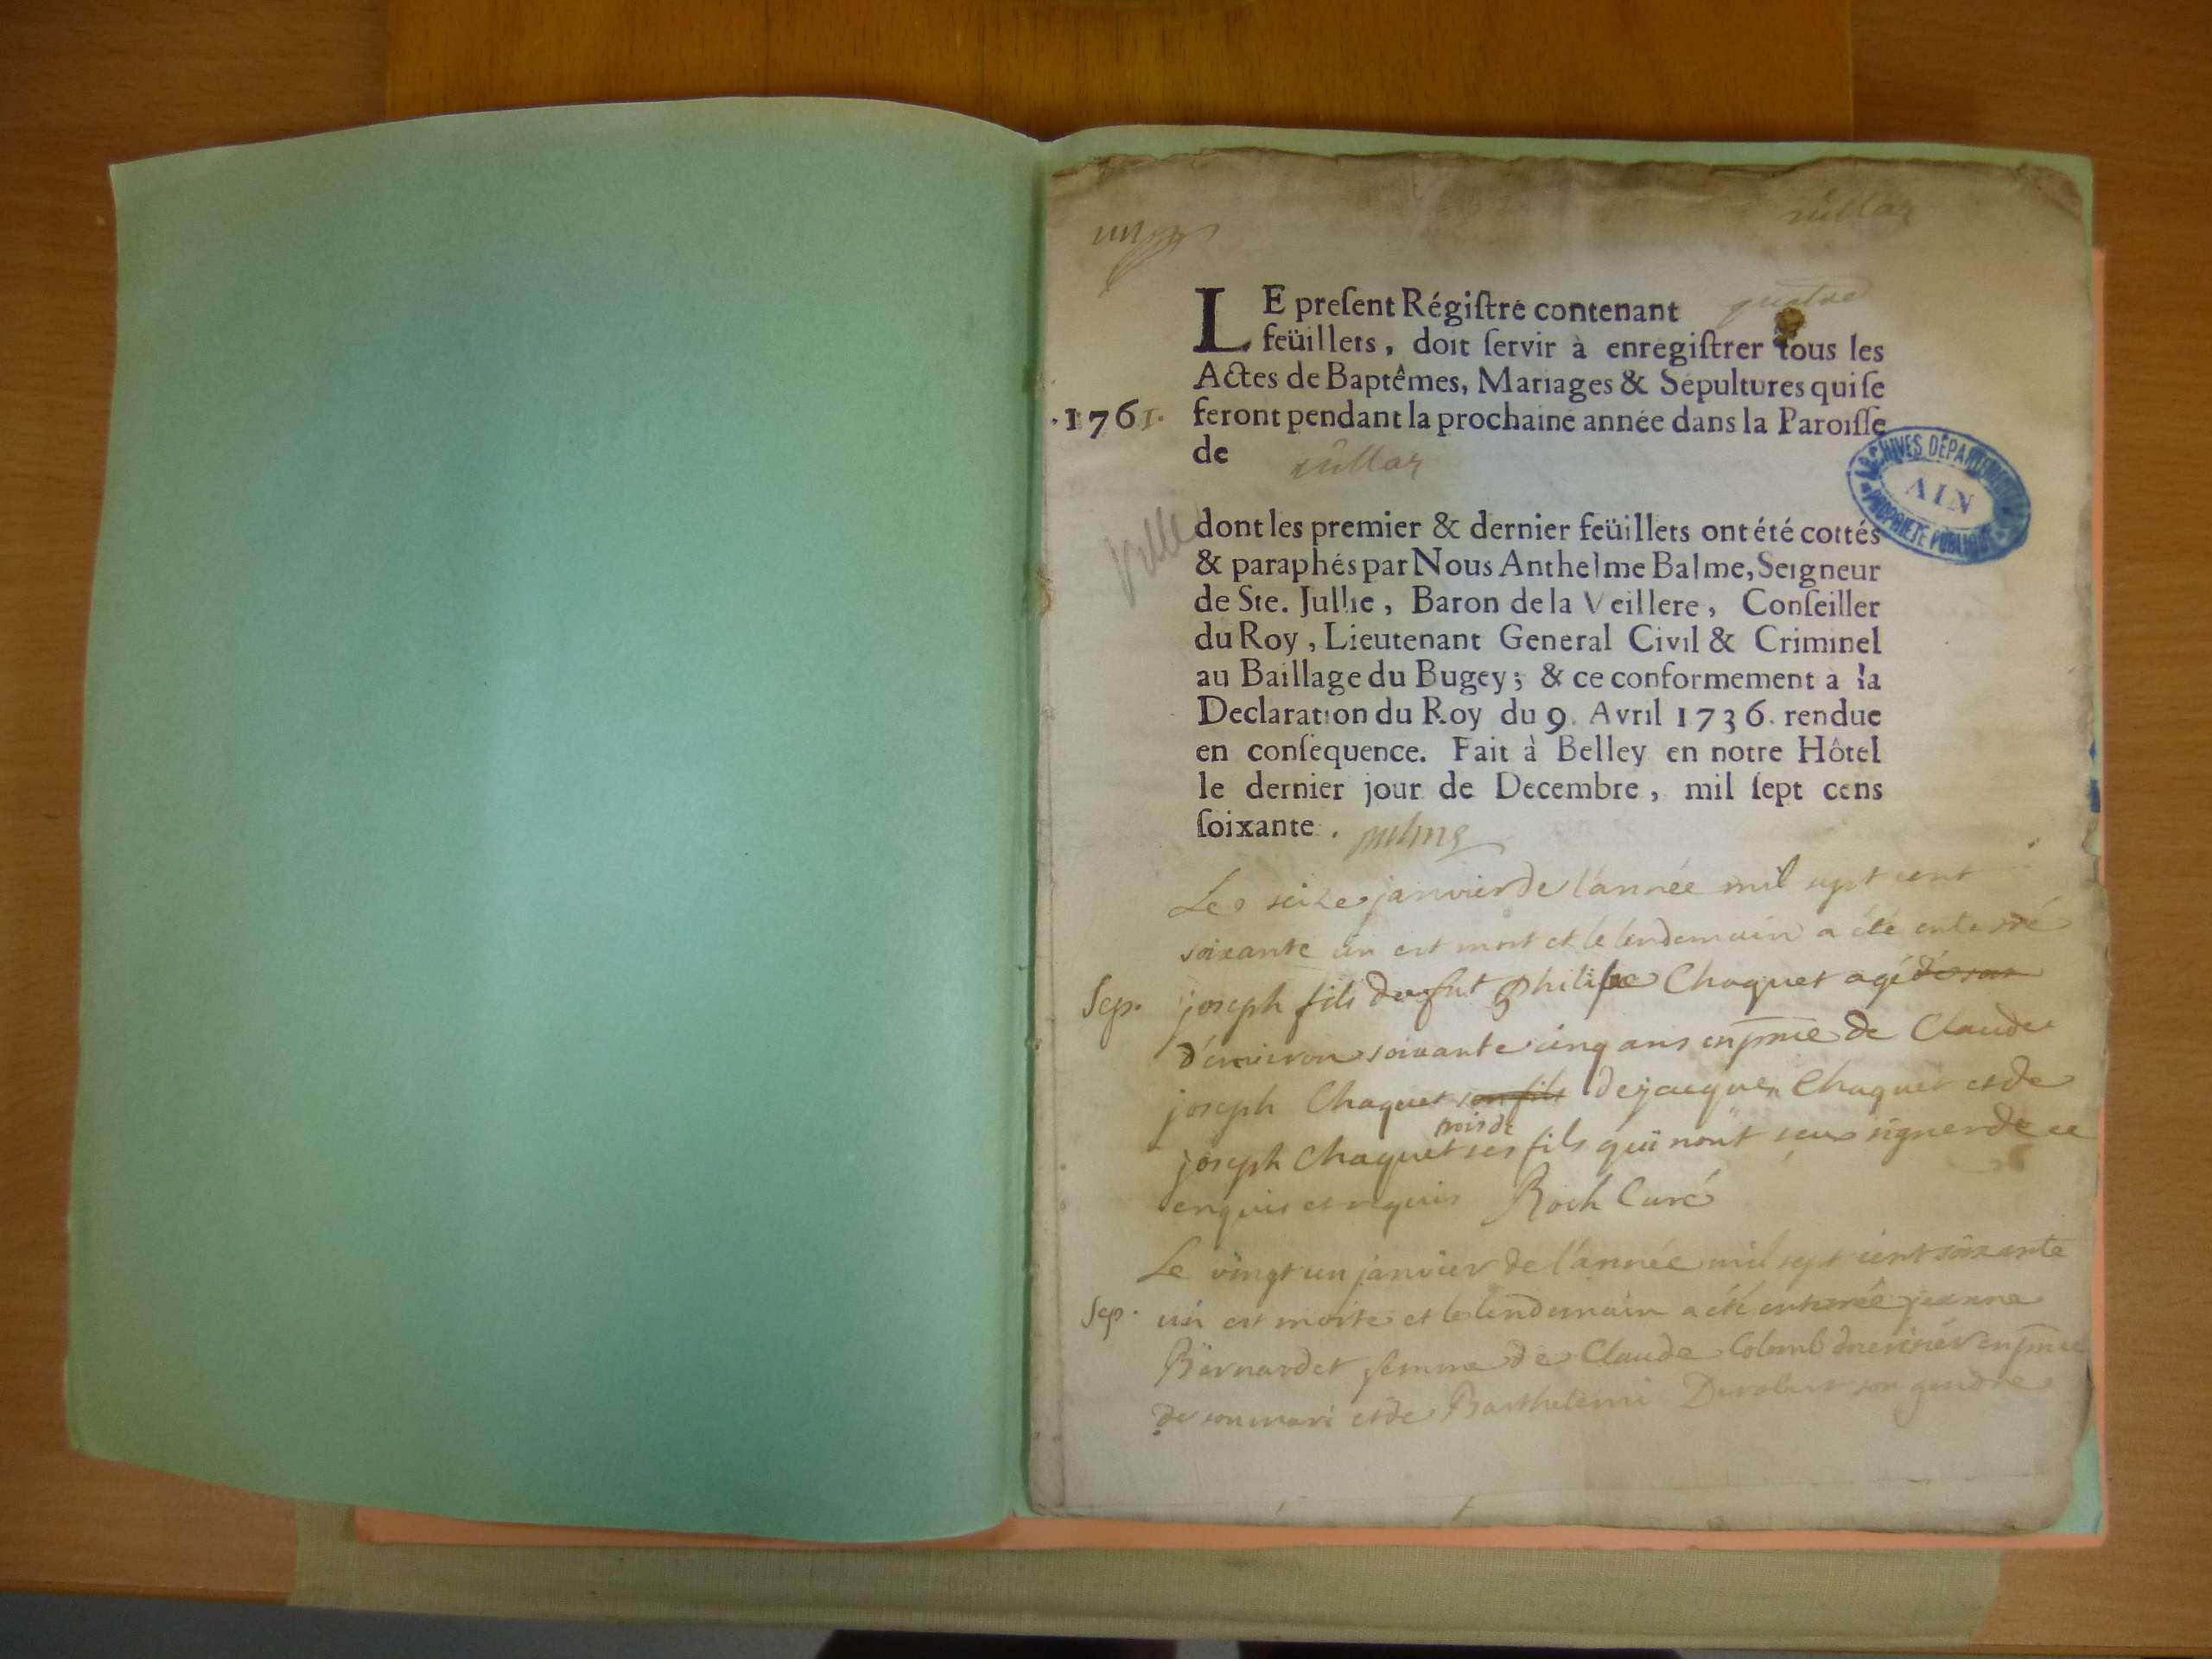 un
LE preſent Régiſtre contenant quatre
feüillets, doit ſervir à enregiſtrer tous les
Actes de Baptêmes, Mariages & Sépultures qui ſe
.1761. feront pendant la prochaine année dans la Paroiſſe
de
ARCHIVES DÉPARTEMENTALES
AIN
PROPRIÉTÉ PUBLIQUE
dont les premier & dernier feüillets ont été cottés
& paraphés par Nous Anthelme Balme, Seigneur
de Ste. Jullie, Baron de la Veillere, Conſeiller
du Roy, Lieutenant General Civil & Criminel
au Baillage du Bugey; & ce conformement a la
Declaration du Roy du 9. Avril 1736. rendue
en conſequence. Fait à Belley en notre Hôtel
le dernier jour de Decembre, mil ſept cens
ſoixante.
Le seize janvier de l'année mil sept cent
soixante un est mort et le lendemain a été enterré
Sep. joseph fils de fut philipe Chaquet agé
d'environ soixante cinq ans en pnce de Claude
joseph Chaquet son fils de jacques Chaquet et de
joseph Chaquet ses fils qui n'ont sceu signer de ce
enquis et requis Roch Curé
Le vingt un janvier de l'année mil sept cent soixante
Sep. un est morte et le lendemain a été enterrée jeanne
Bernardet femme de Claude Colomb en pnce
de son mari et de Barthelemi son gendre